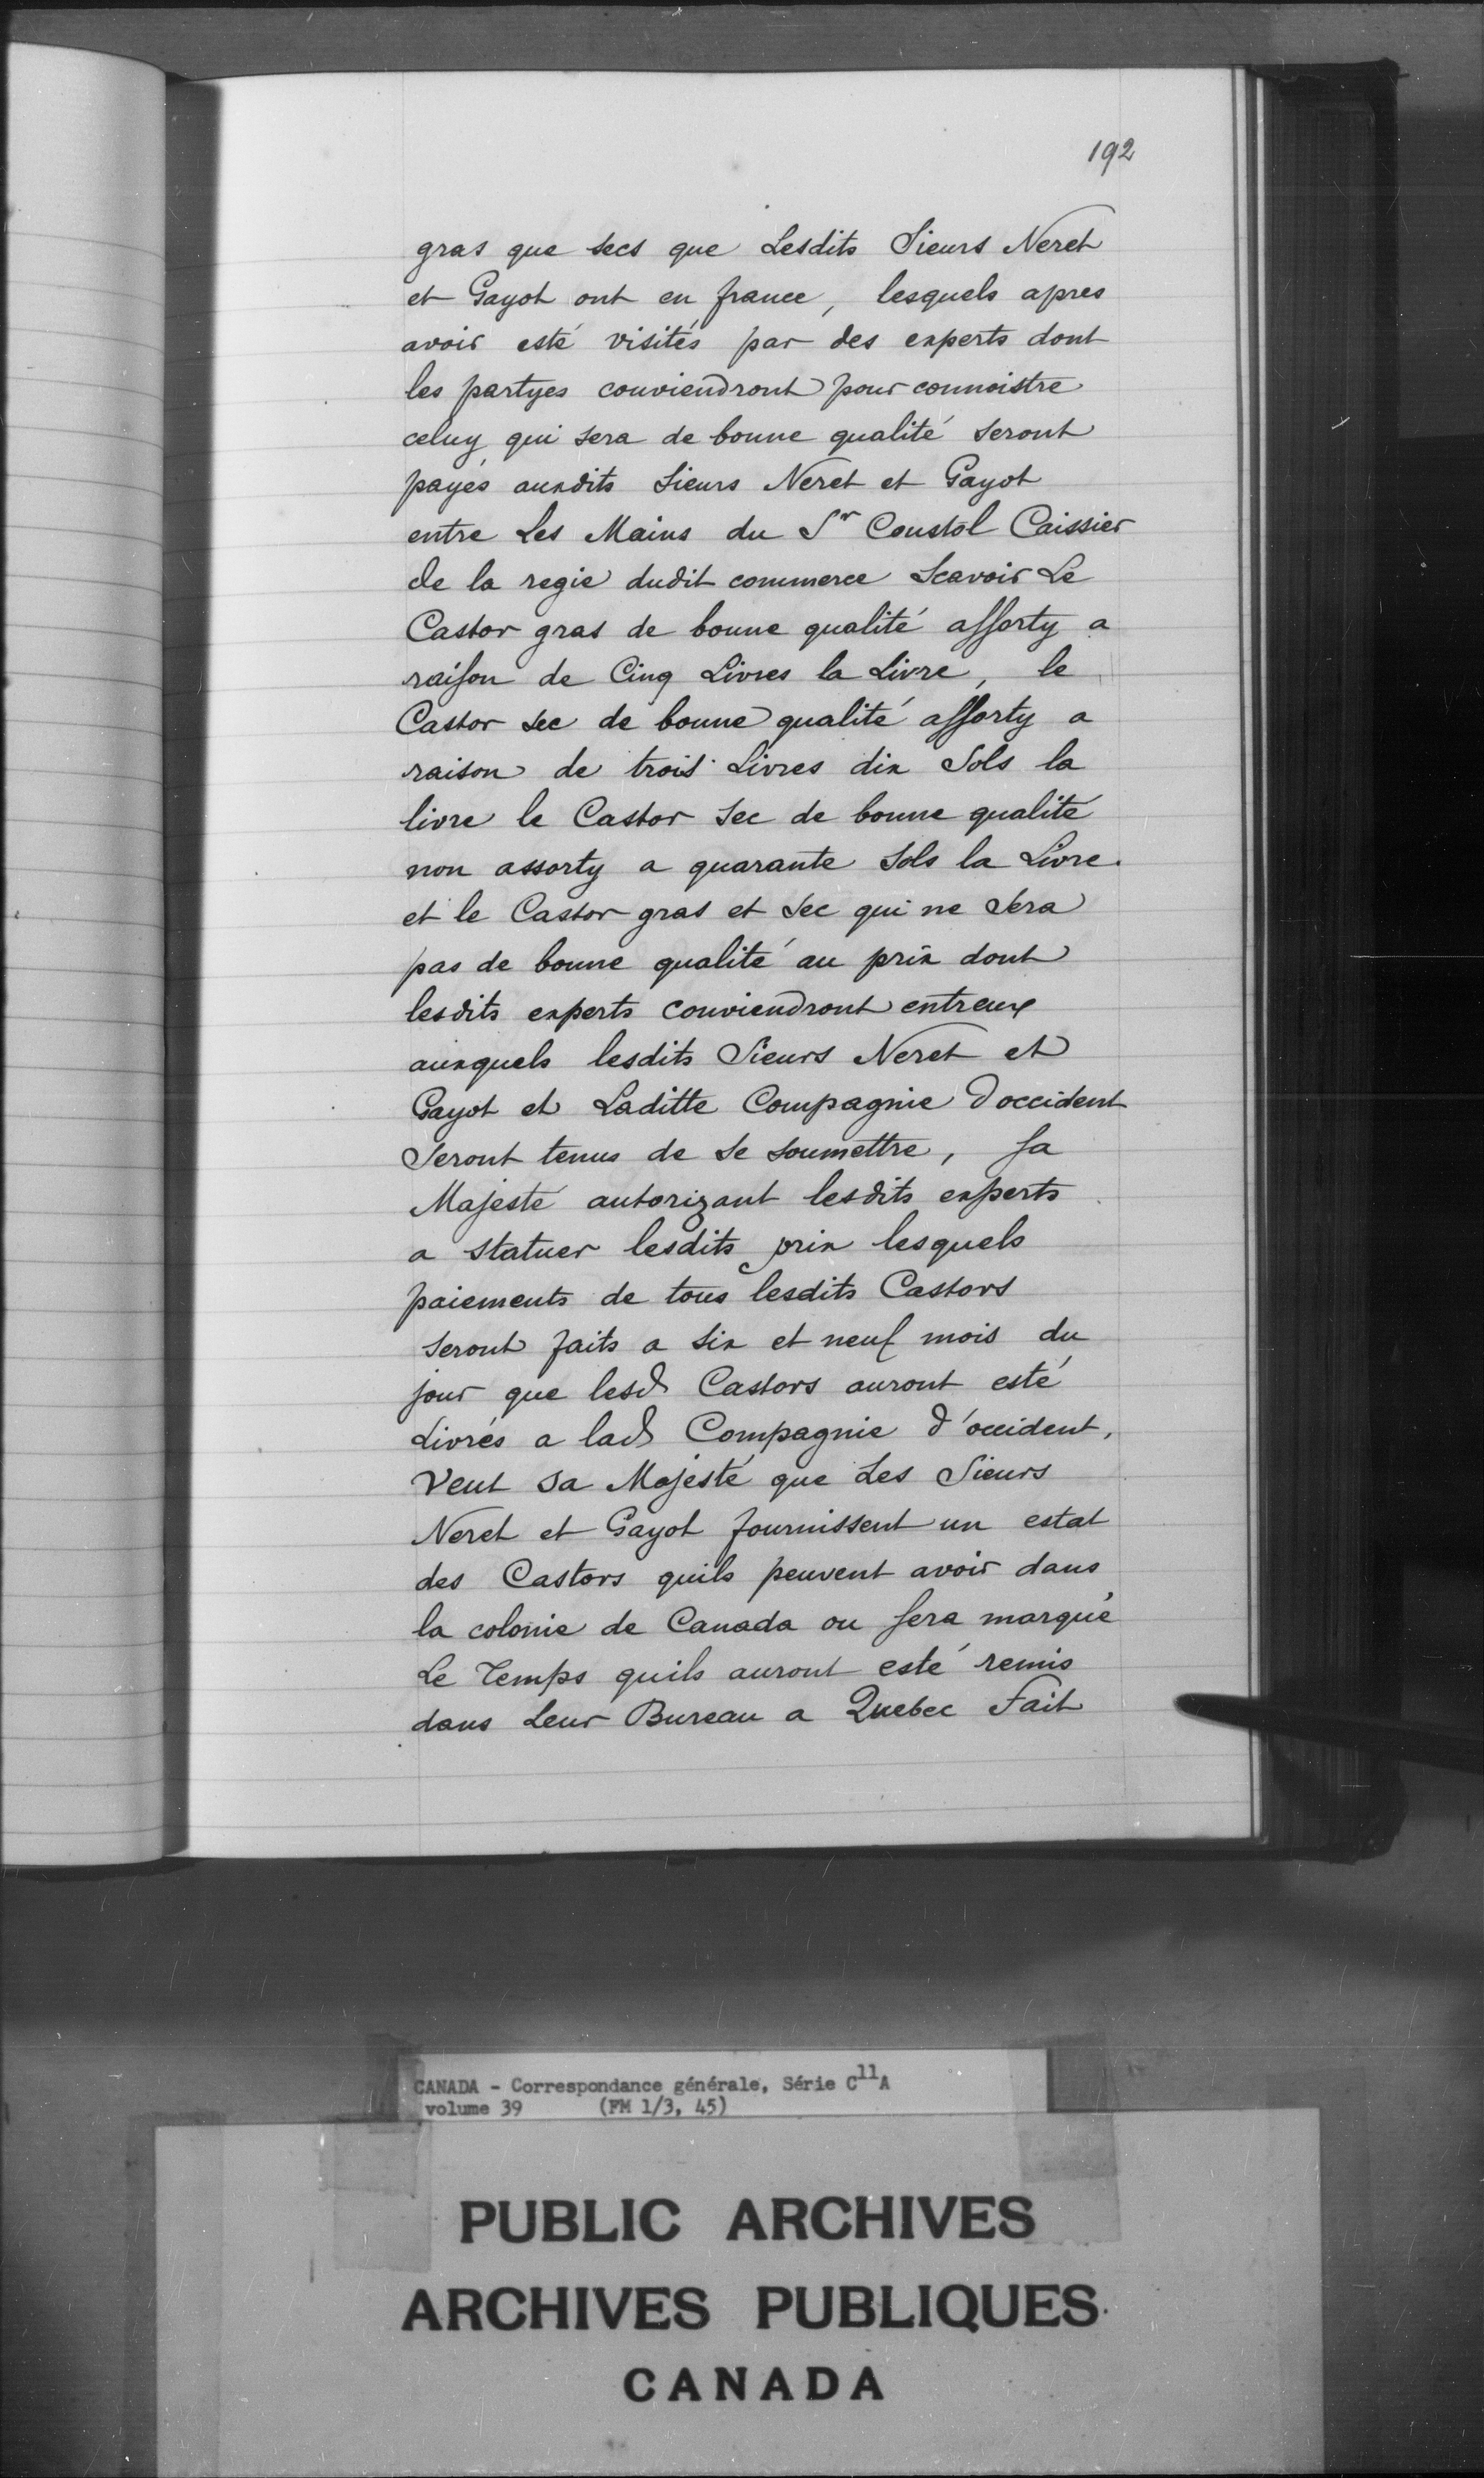 192
gras que secs que Lesdits Sieurs Neret
et Gayot ont en france, lesquels apres
avoir esté visités par des experts dont
les partyes conviendront pour connoistre
celuy qui sera de bonne qualité seront
payés auxdits Sieurs Neret et Gayot
entre Les Mains du Sr Coustol Caissier
de la regie dudit commerce Scavoir Le
Castor gras de bonne qualité assorty a
raison de Cinq Livres la Livre, le
Castor sec de bonne qualité assorty a
raison de trois Livres dix Sols la
livre le Castor sec de bonne qualité
non assorty a quarante Sols la Livre.
et le Castor gras et sec qui ne sera
pas de bonne qualité au prix dont
lesdits experts conviendront entreux
auxquels lesdits Sieurs Neret et
Gayot et Laditte Compagnie Doccident
Seront tenus de se soumettre, sa
Majesté autorizant lesdits experts
a statuer lesdits prix lesquels
paiements de tous lesdits Castors
seront faits a six et neuf mois du
jour que lesd Castors auront esté
Livrés a lad Compagnie d'occident,
Veut Sa Majesté que Les Sieurs
Neret et Gayot fournissent un estat
des Castors quils peuvent avoir dans
la colonie de Canada ou sera marqué
Le Temps quils auront esté remis
dans Leur Bureau a Quebec Fait
CANADA - Correspondance générale, Série C11A
volume 39 (FM 1/3, 45)
PUBLIC ARCHIVES
ARCHIVES PUBLIQUES
CANADA